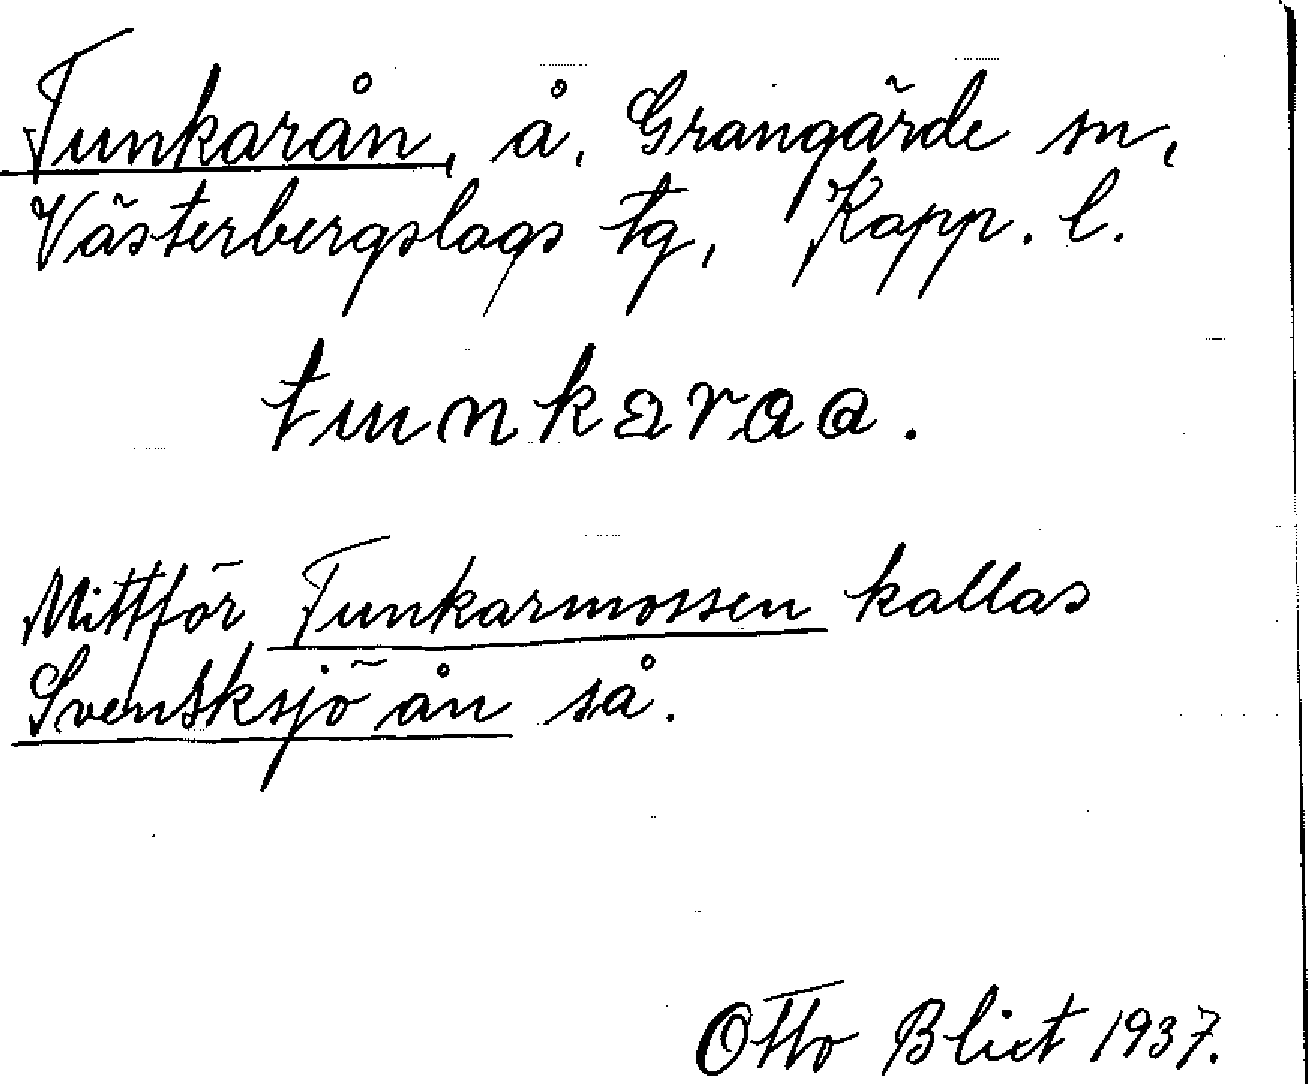 Tunkarån, å, Grangärde sn,
Västerbergslags tg, Kopp. l.
Mittför Tunkarmossen kallas
Svensksjöån så.
Otto Blixt 1937.